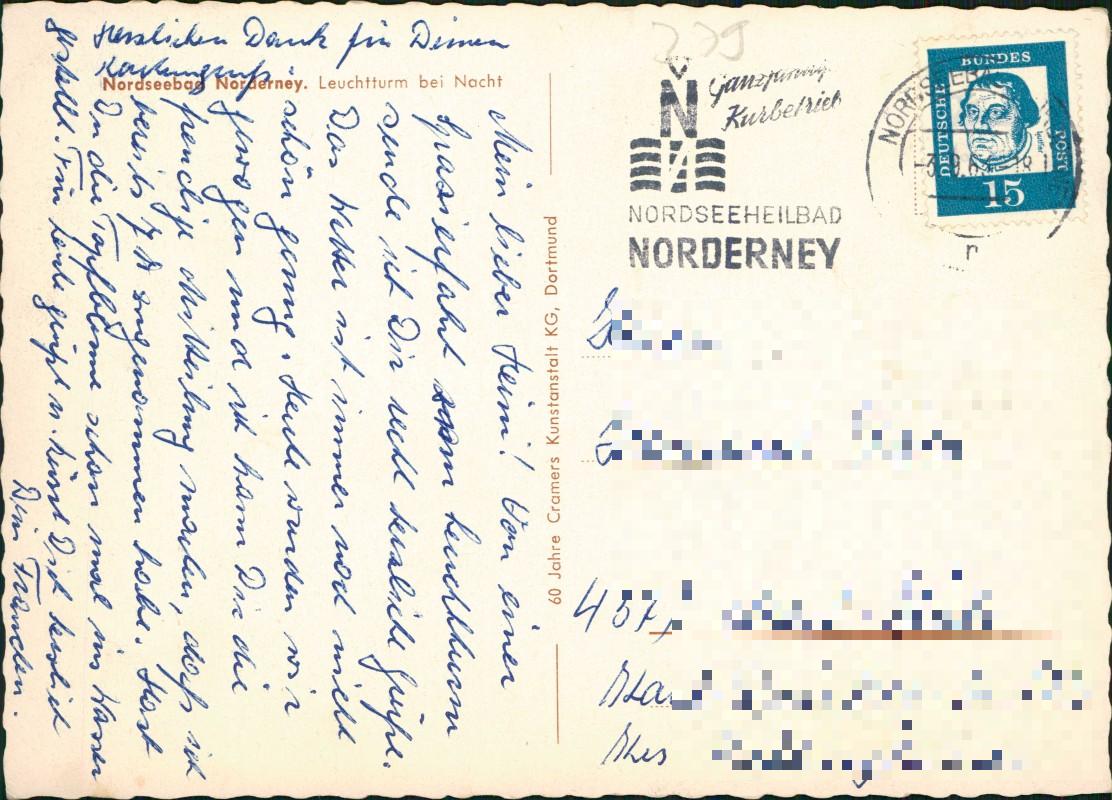 Herzlichen Dank für Deinen
Kartengruß.
Nordseebad Norderney. Leuchtturm bei Nacht
Mein lieber Heini! Von einer
Spazierfahrt zum Leuchtturm
sende ich Dir recht herzliche Grüße.
Das Wetter ist immer noch nicht
schön genug. Heute wurden wir
gewogen und ich kann Dir die
freudige Mitteilung machen, daß ich
bereits 7 ℔ zugenommen habe. Hast
Du die Topfblume schon mal ins Wasser
gestellt. Für heute grüßt u. küsst Dich herzlich
Dein Frauchen.
60 Jahre Cramers Kunstanstalt KG, Dortmund
Ganzjährig
Kurbetrieb
N
NORDSEEHEILBAD
NORDERNEY
NORDSEEBAD
DEUTSCHE
BUNDES
POST
15
457